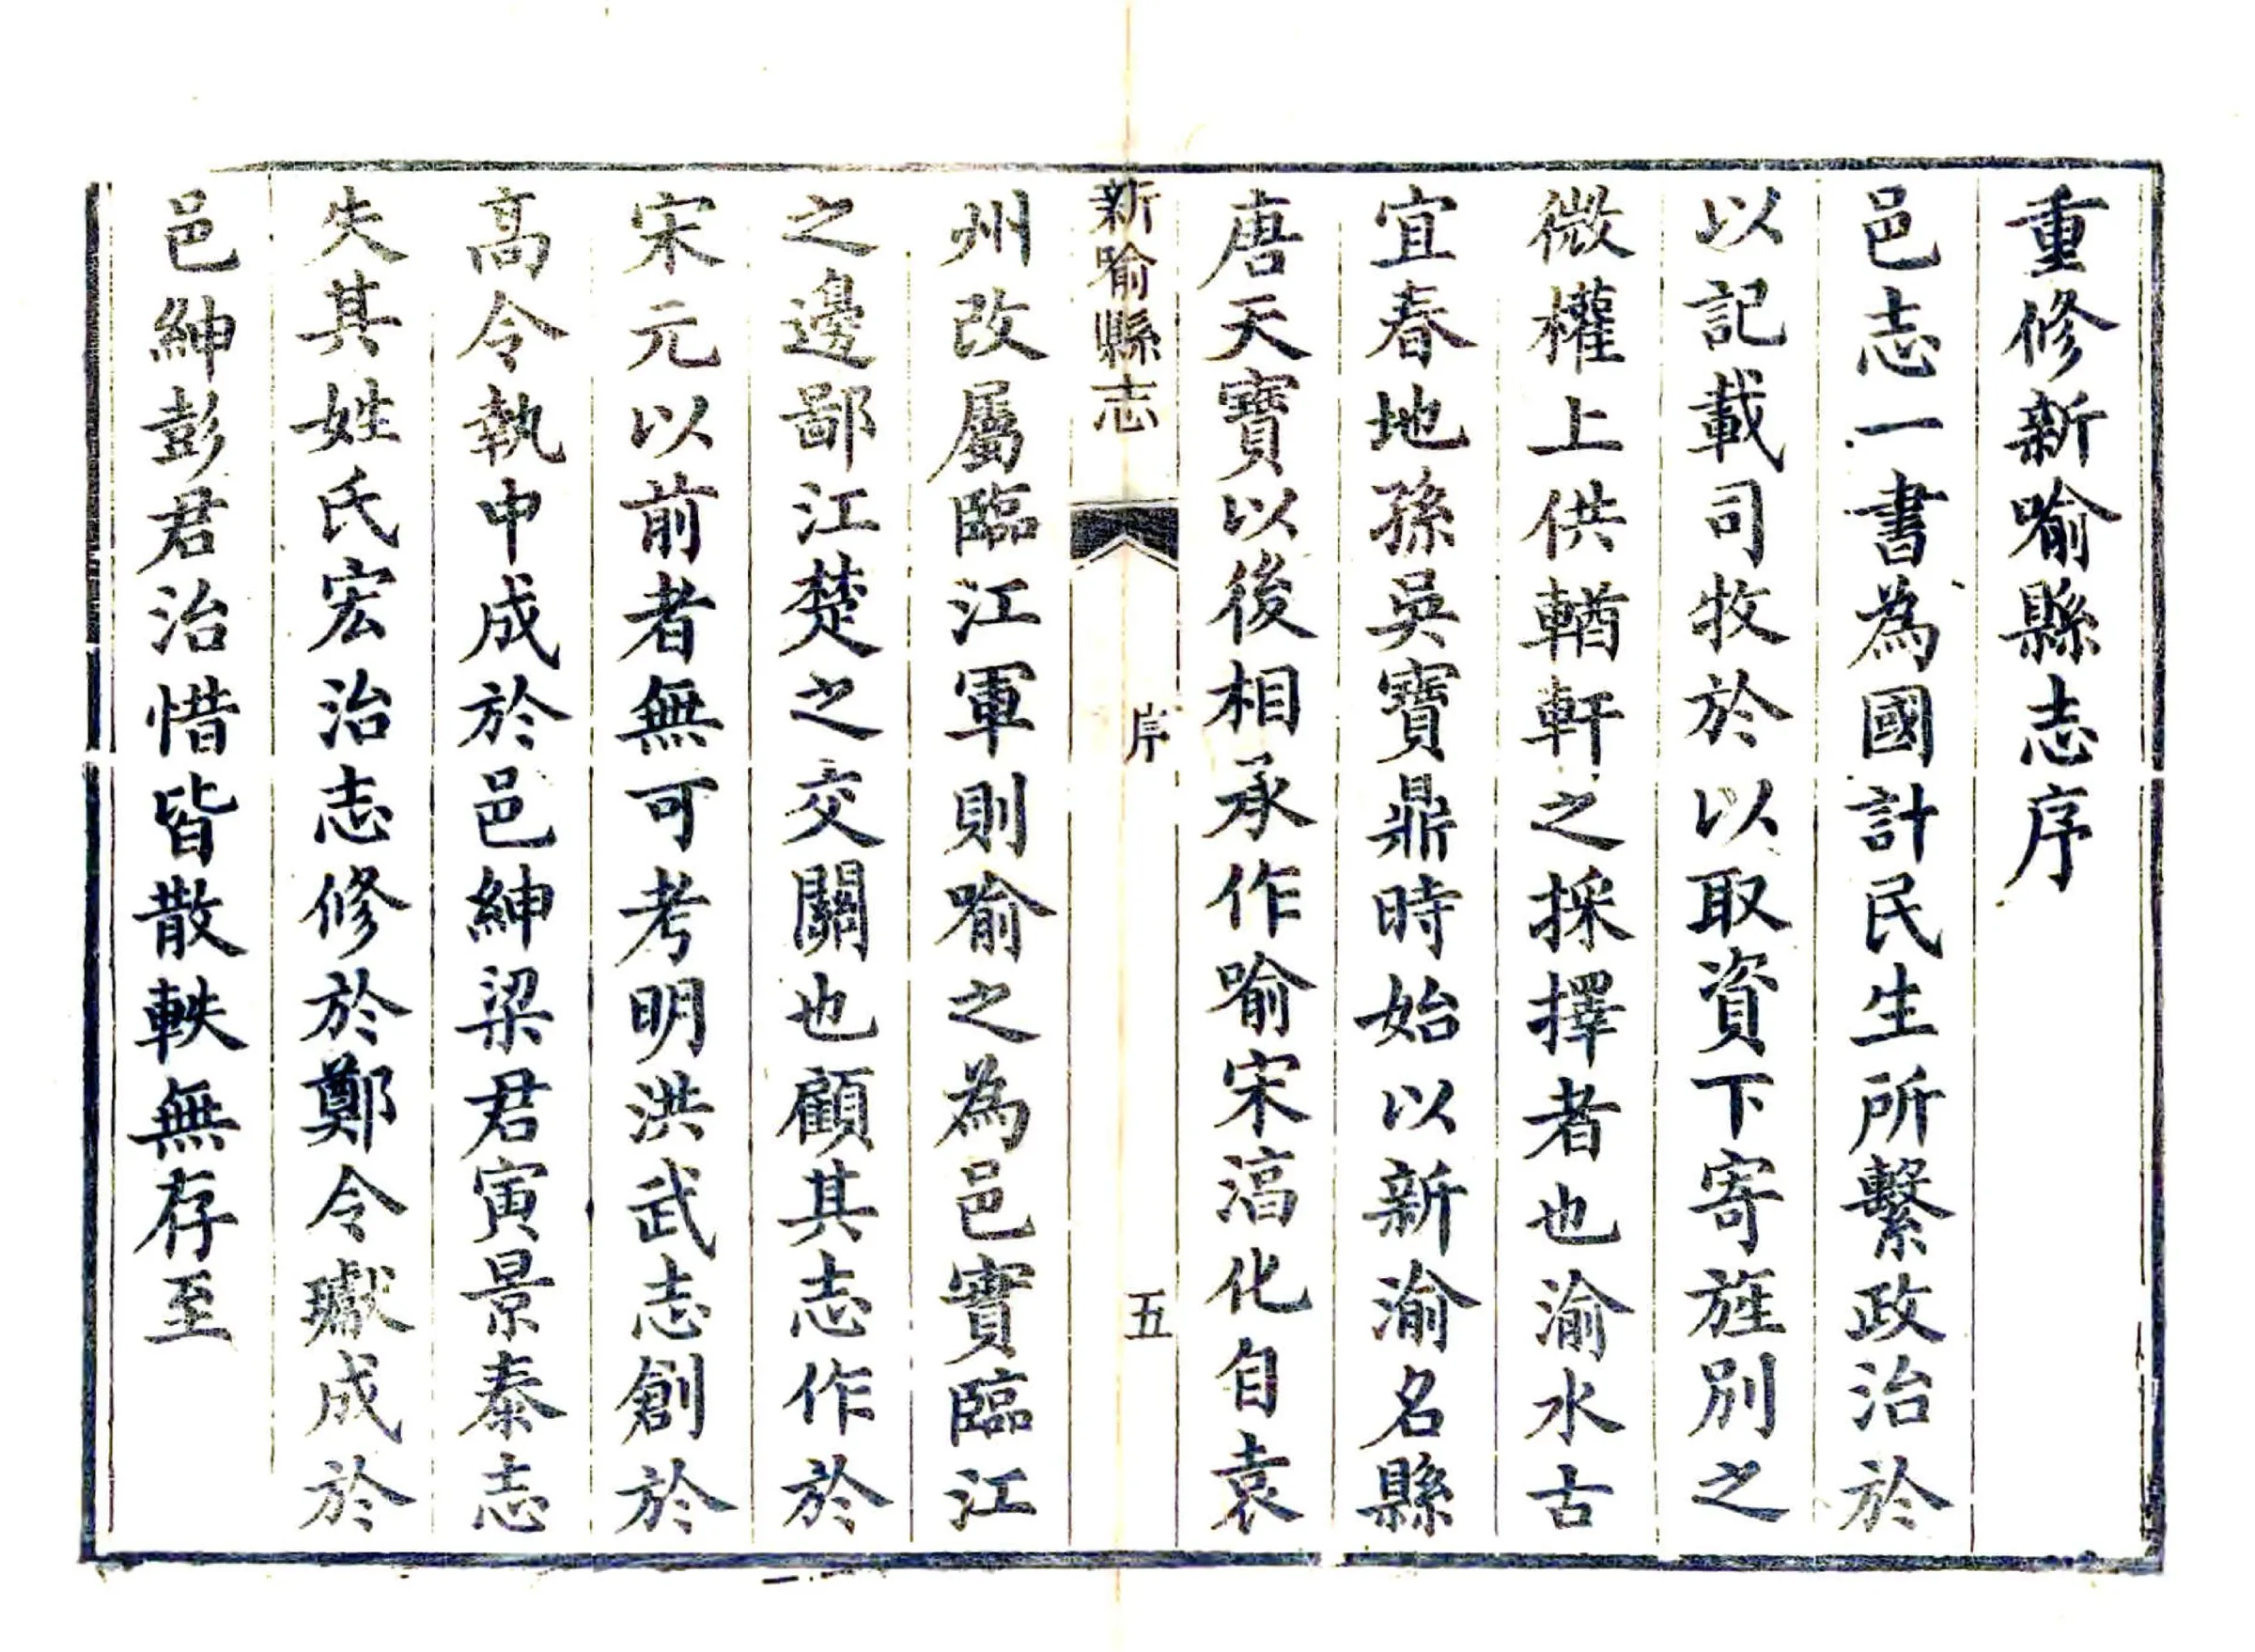 重修新喻縣志序
邑志一書為國計民生所繫政治於
以記載司牧於以取資下寄旌別之
微權上供輶軒之採擇者也渝水古
宜春地孫吳寶鼎時始以新渝名縣
唐天寶以後相承作喻宋淳化自袁
新喻縣志
序
五
州改屬臨江軍則喻之為邑實臨江
之邊鄙江楚之交關也顧其志作於
宋元以前者無可考明洪武志創於
高令執中成於邑紳梁君寅景泰志
失其姓氏宏治志修於鄭令瓛成於
邑紳彭君治惜皆散軼無存至